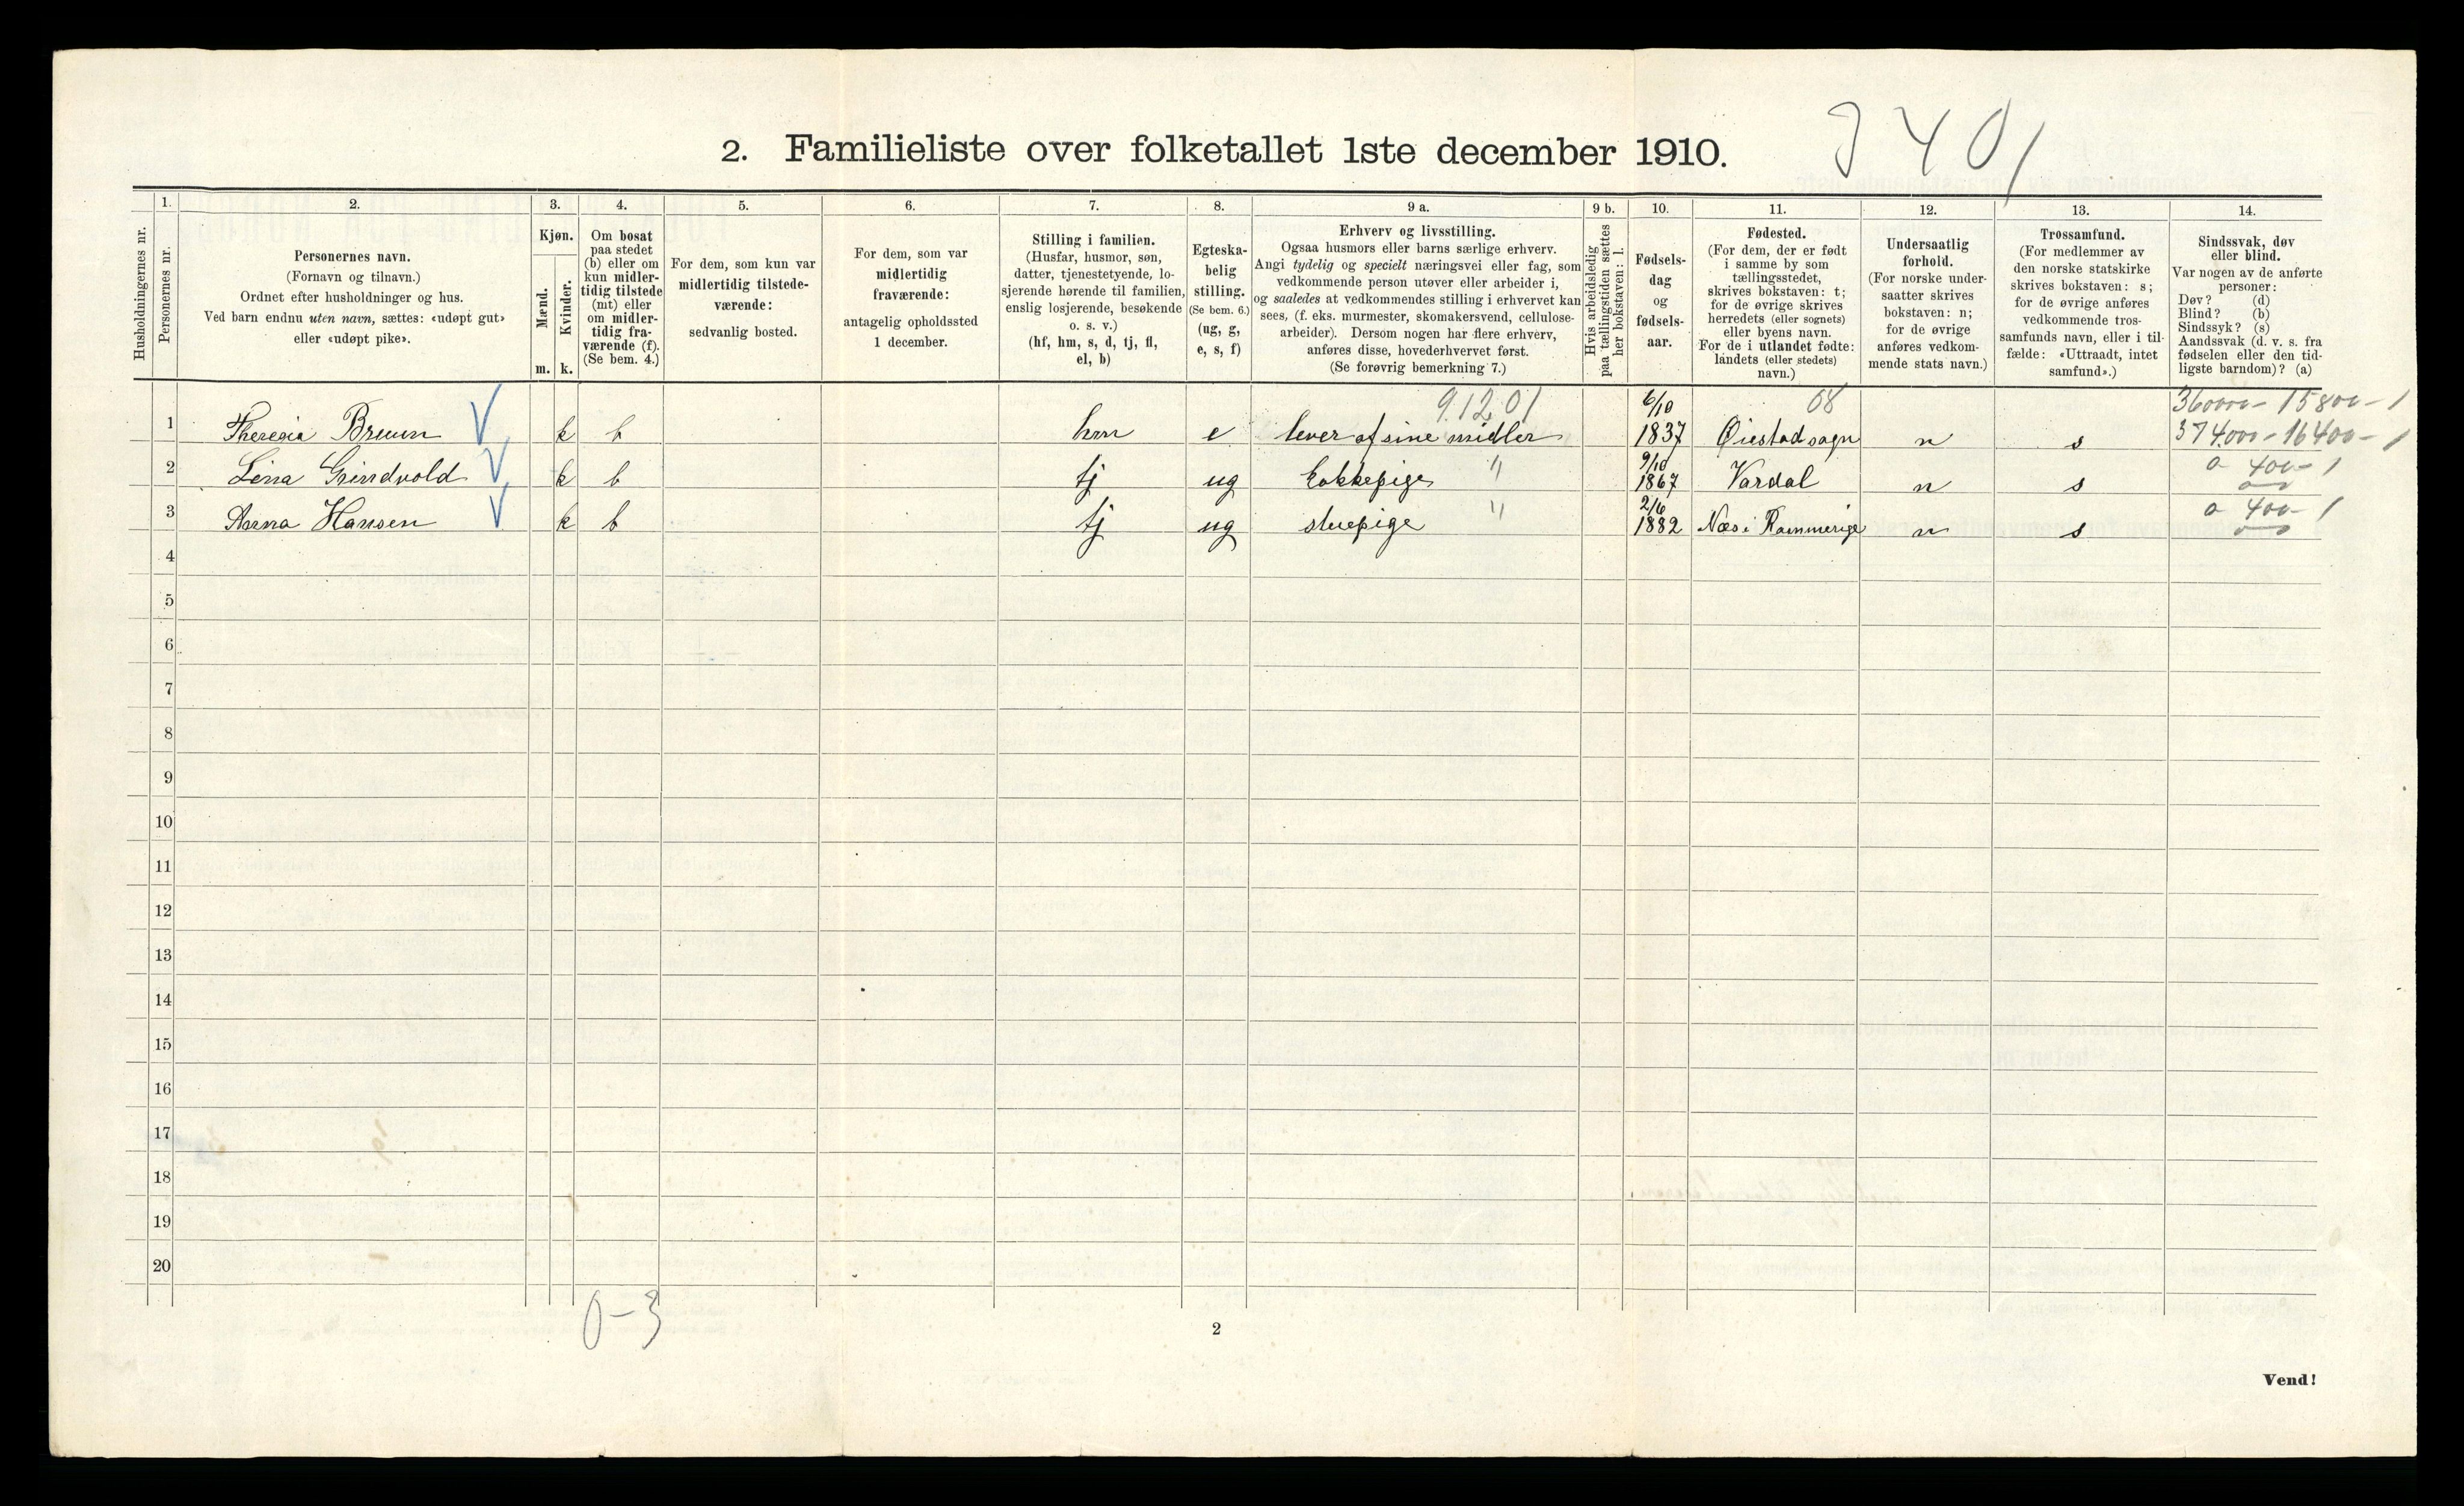 2. Familieliste over folketallet 1ste december 1910.
3401
Husholdningernes nr.
1. Personernes nr.
2. Personernes navn. (Fornavn og tilnavn.) Ordnet efter husholdninger og hus. Ved barn endnu uten navn, sættes: «udøpt gut» eller «udøpt pike».
3. Kjøn. Mænd. m. Kvinder. k.
4. Om bosat paa stedet (b) eller om kun midlertidig tilstede (mt) eller om midlertidig fraværende (f). (Se bem. 4.)
5. For dem, som kun var midlertidig tilstedeværende: sedvanlig bosted.
6. For dem, som var midlertidig fraværende: antagelig opholdssted 1 december.
7. Stilling i familien. (Husfar, husmor, søn, datter, tjenestetyende, losjerende hørende til familien, enslig losjerende, besøkende o. s. v.) (hf, hm, s, d, tj, fl, el, b)
8. Egteskabelig stilling. (Se bem. 6.) (ug, g, e, s, f)
9 a. Erhverv og livsstilling. Ogsaa husmors eller barns særlige erhverv. Angi tydelig og specielt næringsvei eller fag, som vedkommende person utøver eller arbeider i, og saaledes at vedkommendes stilling i erhvervet kan sees, (f. eks. murmester, skomakersvend, cellulosearbeider). Dersom nogen har flere erhverv, anføres disse, hovederhvervet først. (Se forøvrig bemerkning 7.)
9 b. Hvis arbeidsledig paa tællingstiden sættes her bokstaven: l.
10. Fødselsdag og fødselsaar.
11. Fødested. (For dem, der er født i samme by som tællingsstedet, skrives bokstaven: t; for de øvrige skrives herredets (eller sognets) eller byens navn. For de i utlandet fødte: landets (eller stedets) navn.)
12. Undersaatlig forhold. (For norske undersaatter skrives bokstaven: n; for de øvrige anføres vedkommende stats navn.)
13. Trossamfund. (For medlemmer av den norske statskirke skrives bokstaven: s; for de øvrige anføres vedkommende trossamfunds navn, eller i tilfælde: «Uttraadt, intet samfund».)
14. Sindssvak, døv eller blind. Var nogen av de anførte personer: Døv? (d) Blind? (b) Sindssyk? (s) Aandssvak (d. v. s. fra fødselen eller den tidligste barndom)? (a)
9.12.01 68 360000 - 15800 - 1
1 Theresia Bruun V k b hm e lever af sine midler 6/10 1837 Øiestad sogn n s 374.000 - 16400 - 1
2 Lina Grindvold V k b tj ug kokkepige " 9/10 1867 Vardal n s 0 400 - 1
3 Anna Hansen V k b tj ug stuepige " 2/6 1882 Næs i Rommerige n s 0 400 - 1
4
5
6
7
8
9
10
11
12
13
14
15
16
17
18
19
20
0-3
2
Vend!